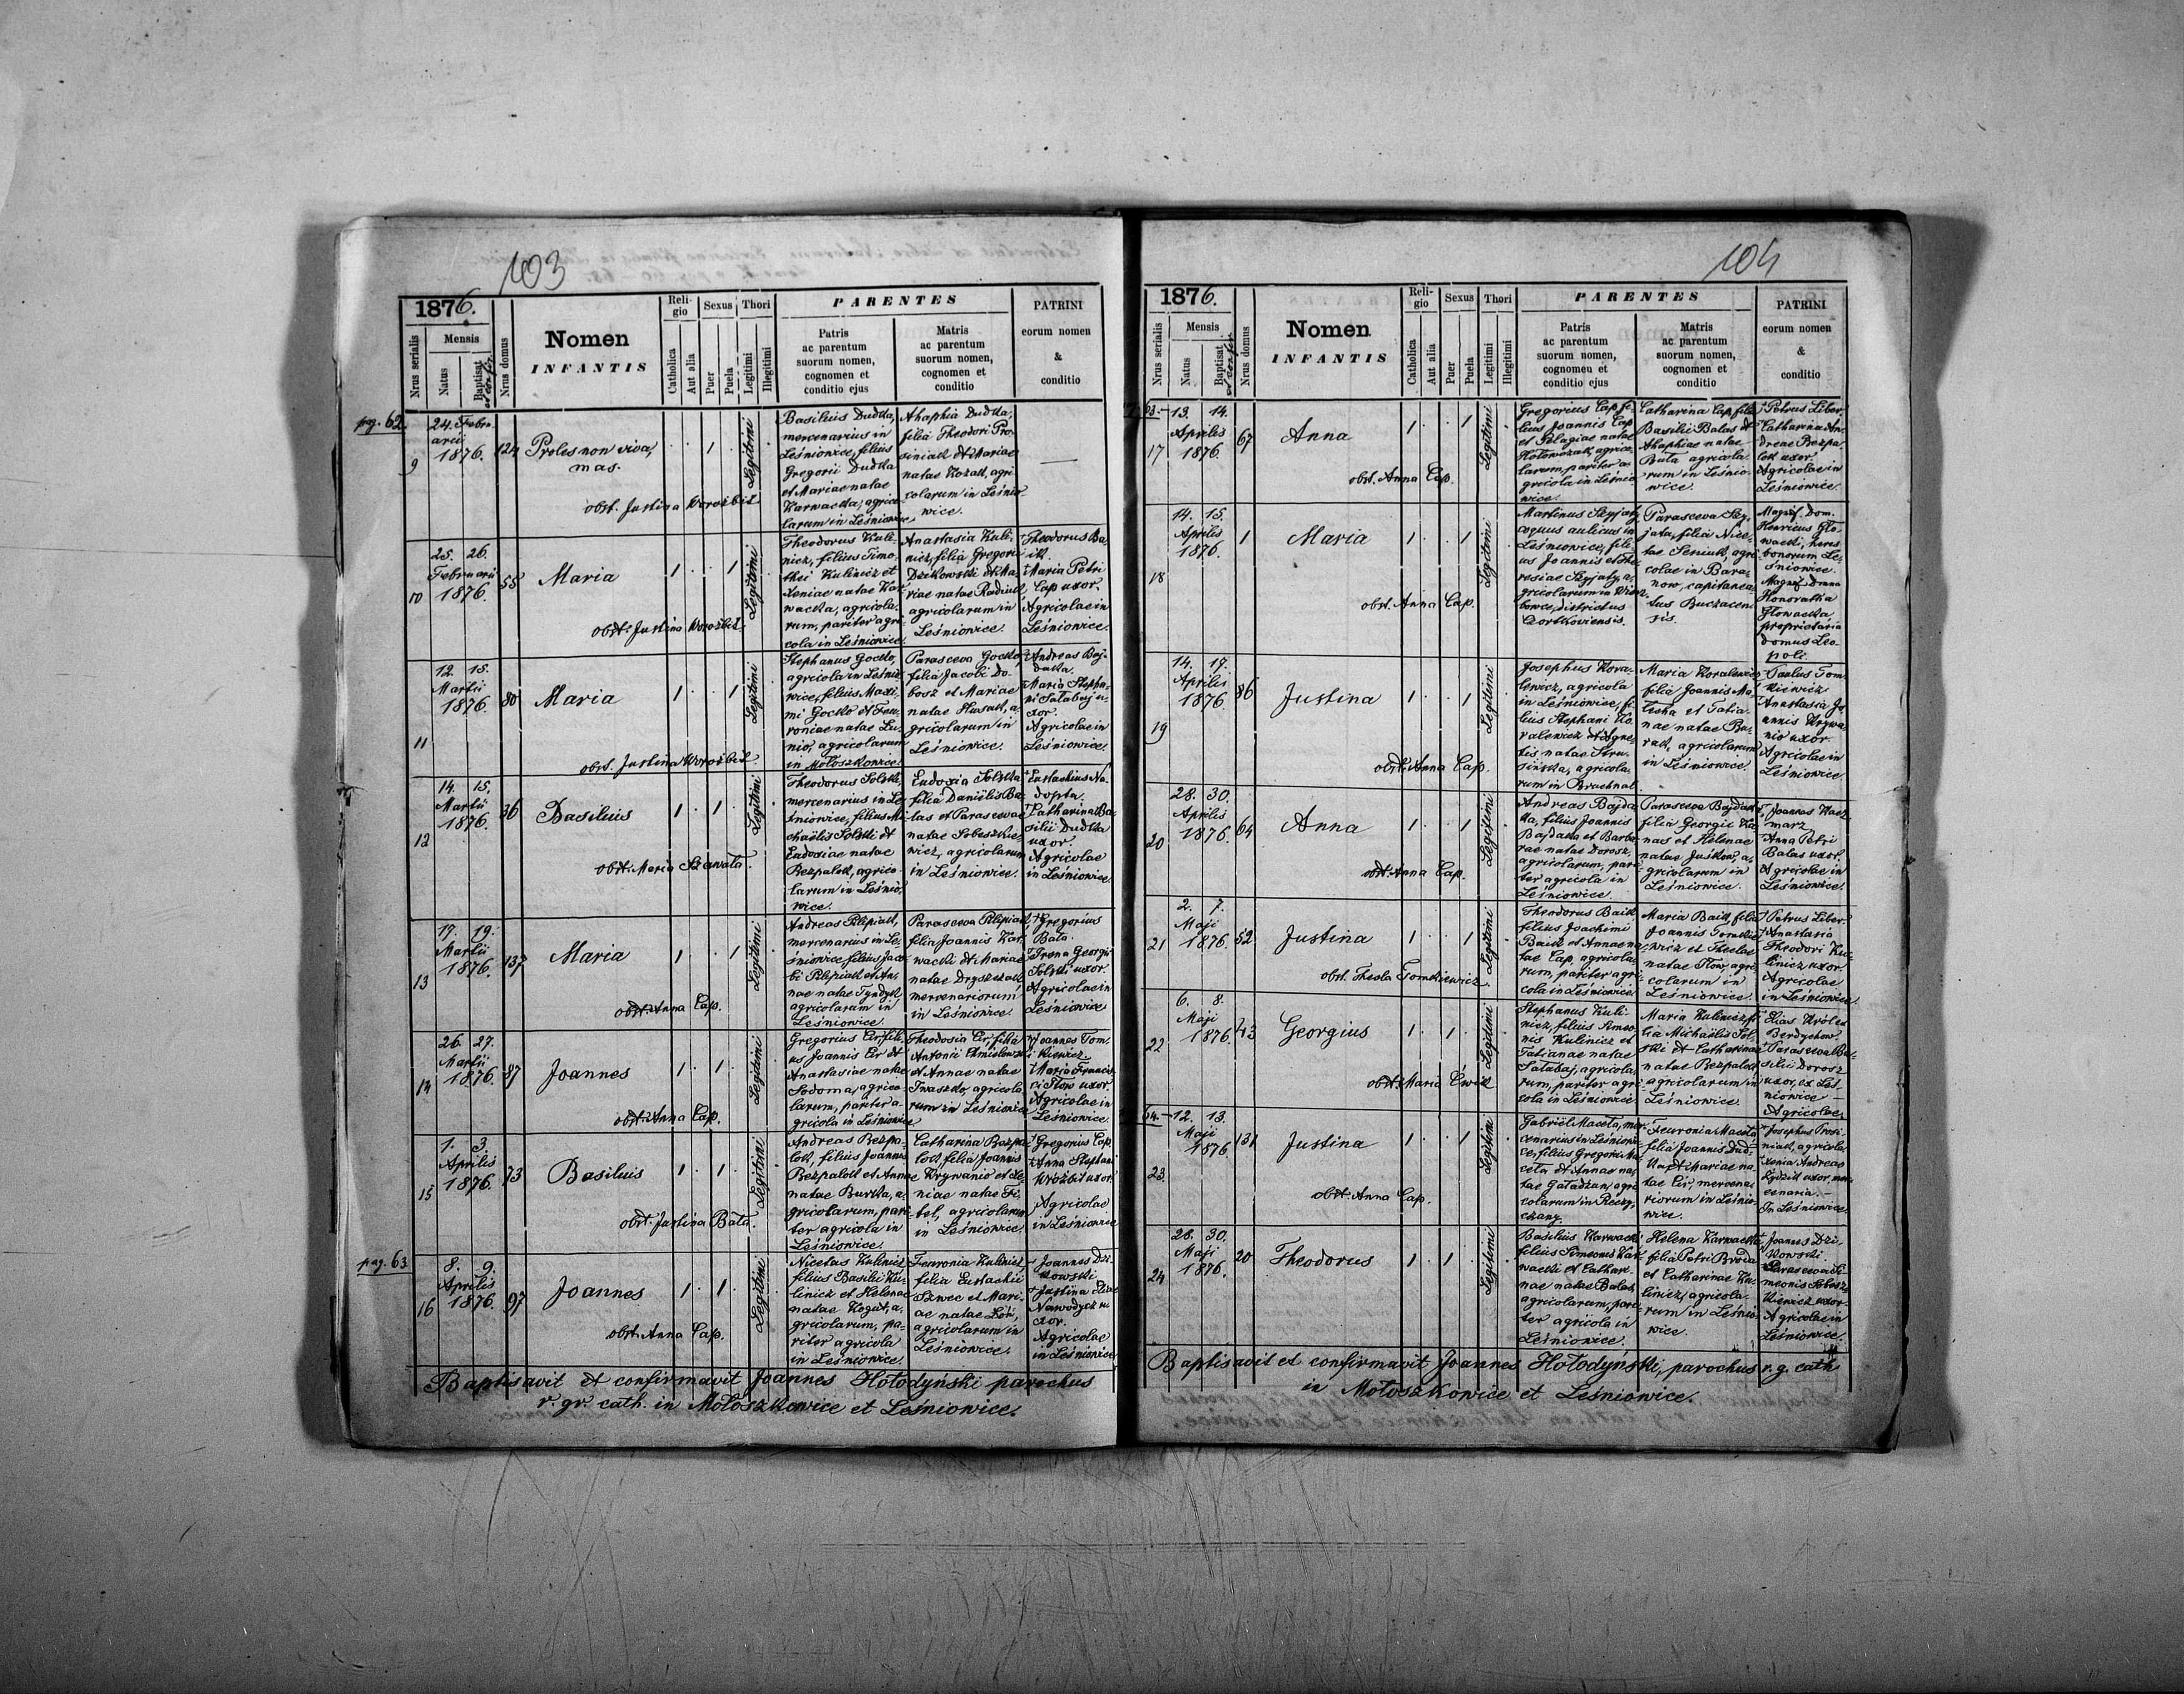 103
1876.
Nrus serialis
Mensis
Natus
Baptisat et confir.
Nrus domus
Nomen
INFANTIS
Religio
Catholica
Aut alia
Sexus
Puer
Puela
Thori
Legitimi
Illegitimi
PARENTES
Patris
ac parentum
suorum nomen,
cognomen et
conditio ejus
Matris
ac parentum
suorum nomen,
cognomen et
conditio
PATRINI
eorum nomen
&
conditio
pag. 62.
9
24. Febru-
arii
1876.
124
Proles non viva,
mas.
obst. Justina Worožbit
1
Legitimi
Basilius Dudka,
mercenarius in
Leśniowice, filius
Gregorii Dudka
et Mariae natae
Karwacka, agrico-
larum in Leśniowice
Ahaphia Dudka,
filia Theodori Pro-
siniak et Mariae
natae Kozak, agri-
colarum in Leśnio-
wice.
—
10
25. 26.
Februarii
1876.
55
Maria
obst. Justina Worožbit
1 1
Legitimi
Theodorus Kuli-
nicz, filius Timo-
thei Kulinicz et
Xeniae natae Kar-
wacka, agricola-
rum, pariter agri-
cola in Leśniowice.
Anastasia Kuli-
nicz, filia Gregorii
Dzikowski et Ma-
riae natae Radiuk
agricolarum in
Leśniowice.
Theodorus Ba-
ik.
Maria Petri
Cap uxor.
Agricolae in
Leśniowice.
11
12. 15.
Martii
1876.
80
Maria
obst. Justina Worožbit.
1 1
Legitimi
Stephanus Gocko,
agricola in Leśnio-
wice, filius Maxi-
mi Gocko et Feu-
roniae natae Lu-
nio, agricolarum
in Mołoszkowice.
Parasceva Gocko,
filia Jacobi Do-
bosz et Mariae
natae Husak, a-
gricolarum in
Leśniowice.
Andreas Baj-
dałka.
Maria Stepha-
ni Sałabaj u-
xor.
Agricolae in
Leśniowice.
12
14. 15.
Martii
1876.
36
Basilius
obst. Maria Szawała.
1 1
Legitimi
Theodorus Solski,
mercenarius in Le-
śniowice, filius Mi-
chaëlis Solski et
Eudoxiae natae
Bezpalok, agrico-
larum in Leśnio-
wice.
Eudoxia Solska
filia Daniëlis Ba-
las et Parascevae
natae Sobeszkie-
wicz, agricolarum
in Leśniowice.
Eustachius Na-
dopta.
Catharina Ba-
silii Dudka
uxor.
Agricolae
in Leśniowice.
13
17. 19.
Martii
1876.
137
Maria
obst. Anna Cap.
1 1
Legitimi
Andreas Pilipiak,
mercenarius in Le-
śniowice, filius Jaco-
bi Pilipiak et An-
nae natae Tyndyk,
agricolarum in
Leśniowice.
Parasceva Pilipiak
filia Joannis Kar-
wacki et Mariae
natae Dryszczak
mercenariorum
in Leśniowice.
Gregorius
Bata.
Irena Georgii
Solski uxor.
Agricolae in
Leśniowice
14
26. 27.
Martii
1876.
87
Joannes
obst. Anna Cap.
1 1
Legitimi
Gregorius Cir, fili-
us Joannis Cir et
Anastasiae natae
Sodoma, agrico-
larum, pariter a-
gricola in Leśniowice
Theodosia Cir, filia
Antonii Chmielowski
et Annae natae
Iwaszko, agricola-
rum in Leśniowice
Joannes Tom-
kiewicz.
Maria Francis-
ci Flow uxor.
Agricolae in
Leśniowice.
15
1. 3.
Aprilis
1876.
73
Basilius
obst. Justina Bata.
1 1
Legitimi
Andreas Bezpa-
lok, filius Joannis
Bezpalok et Annae
natae Burka, a-
gricolarum, pari-
ter agricola in
Leśniowice.
Catharina Bezpa-
lok, filia Joannis
Krywanio et Xe-
niae natae Fi-
tel, agricolarum
in Leśniowice.
Gregorius Cap.
Anna Stephani
Wrožbit uxor.
Agricolae
in Leśniowice
pag. 63
16
8. 9.
Aprilis
1876.
97
Joannes
obst. Anna Cap.
1 1
Legitimi
Nicetas Kulinicz,
filius Basilii Ku-
linicz et Helenae
natae Kogut, a-
gricolarum, pa-
riter agricola
in Leśniowice.
Feuronia Kulinicz,
filia Eustachii
Szwec et Mari-
ae natae Koń,
agricolarum in
Leśniowice.
Joannes Dzi-
kowski.
Justina
Nawodycz u-
xor.
Agricolae
in Leśniowice
Baptisavit et confirmavit Joannes Hołodyński parochus
r. gr. cath. in Mołoszkowice et Leśniowice.
104
1876.
Nrus serialis
Mensis
Natus
Baptisat et confir.
Nrus domus
Nomen
INFANTIS
Religio
Catholica
Aut alia
Sexus
Puer
Puela
Thori
Legitimi
Illegitimi
PARENTES
Patris
ac parentum
suorum nomen,
cognomen et
conditio ejus
Matris
ac parentum
suorum nomen,
cognomen et
conditio
PATRINI
eorum nomen
&
conditio
63.
17
13. 14.
Aprilis
1876
67
Anna
obst. Anna Cap.
1 1
Legitimi
Gregorius Cap fi-
lius Joannis Cap
et Pelagiae natae
Hołowczak, agrico-
larum, pariter a-
gricola in Leśnio-
wice.
Catharina Cap, filia
Basilii Balas et
Ahaphiae natae
Buta agricola-
rum in Leśnio-
wice.
Petrus Liber.
Catharina An-
dreae Bezpa-
lok uxor.
Agricolae in
Leśniowice.
18
14. 15.
Aprilis
1876.
1
Maria
obst. Anna Cap.
1 1
Legitimi
Martinus Szyjaty,
coquus aulicus in
Leśniowice, fili-
us Joannis et The-
resiae Szyjaty, a-
gricolarum in Wierz-
bowce, districtus
Czortkoviensis.
Parasceva Szy-
jata, filia Nice-
tae Seniuk, agri-
colae in Bara-
now, capitanea-
tus Buczacen-
sis.
Magnif. Dom.
Henricus Gło-
wacki, heres
bonorum Le-
śniowice.
Magnif. Domna
Honoratka
Głowacka
proprietaria
domus Leo-
poli
19
14. 17.
Aprilis
1876
86
Justina
obst. Anna Cap.
1 1
Legitimi
Josephus Kova-
lewicz, agricola
in Leśniowice, fi-
lius Stephani Ko-
valewicz et Agne-
tis natae Stru-
sińska, agricola-
rum in Bruchnal
Maria Kovalewicz
filia Joannis Ma-
tesha et Tatia-
nae natae Bu-
rak, agricolarum
in Leśniowice.
Paulus Tom-
kiewicz
Anastasia Jo-
annis Krywa-
nio uxor.
Agricolae in
Leśniowice
20
28. 30.
Aprilis
1876.
64
Anna
obst. Anna Cap.
1 1
Legitimi
Andreas Bajda-
ka, filius Joannis
Bajdaka et Barba-
rae natae Dorosz,
agricolarum, pari-
ter agricola in
Leśniowice.
Parasceva Bajdaka
filia Georgii Ka-
nas et Helenae
natae Juśkow, a-
gricolarum in
Leśniowice.
Joannes Kacz-
marz
Anna Petri
Balas uxor.
Agricolae in
Leśniowice.
21
2. 7.
Maji
1876.
52
Justina
obst. Thecla Tomkiewicz.
1 1
Legitimi
Theodorus Baik
filius Joachimi
Baik et Annae na-
tae Cap, agricola-
rum, pariter agri-
cola in Leśniowice.
Maria Baik, filia
Joannis Tomkie-
wicz et Theclae
natae Flow, agri-
colarum in
Leśniowice.
Petrus Liber.
Anastasia
Theodori Ku-
linicz uxor.
Agricolae
in Leśniowice.
22
6. 8.
Maji
1876
43
Georgius
obst. Maria Ćwik
1 1
Legitimi
Stephanus Kuli-
nicz, filius Simeo-
nis Kulinicz et
Tatianae natae
Sałabaj, agricola-
rum, pariter agri-
cola in Leśniowice
Maria Kulinicz, fi-
lia Michaëlis Sol-
ski et Catharinae
natae Bezpalok
agricolarum in
Leśniowice.
Elias Król ex
Berdychow.
Parasceva Ba-
silii Dorosz
uxor, ex Leś-
niowice —
Agricolae.
64.
23
12. 13.
Maji
1876
131
Justina
obst. Anna Cap.
1 1
Legitimi
Gabriël Maceta, mer-
cenarius in Leśniowi-
ce, filius Gregorii Ma-
ceta et Annae na-
tae Gaładzun, agri-
colarum in Rzecy-
czany.
Feuronia Maceta
filia Joannis Dud-
ka et Mariae na-
tae Cir, mercena-
riorum in Leśnio-
wice.
Josephus Prosi-
niak, agricola.
Xenia Andreae
Kydzik uxor, mer-
cenaria. —
In Leśniowice.
24
28. 30.
Maji
1876.
20
Theodorus
1 1
Legitimi
Basilius Karwacki
filius Simeonis Kar-
wacki et Cathari-
nae natae Balas,
agricolarum, pari-
ter agricola in
Leśniowice.
Helena Karwacka,
filia Petri
et Catharinae Ku-
linicz, agricola-
rum in Leśnio-
wice.
Joannes Dzi-
kowski.
Parasceva Si-
meonis Sobesz-
kiewicz uxor.
Agricolae in
Leśniowice.
Baptisavit et confirmavit Joannes Hołodyński, parochus r. g. cath
in Mołoszkowice et Leśniowice.